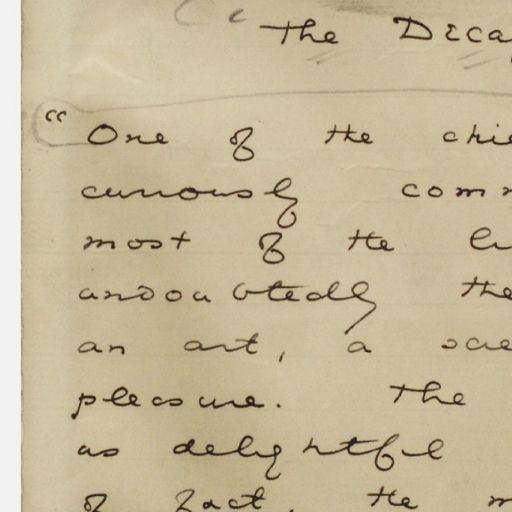 The Deca
" One of the chie
curiously comm
most of the li
undoubtedly the
an art, a scie
pleasure. The
as delightful
of fact, the m